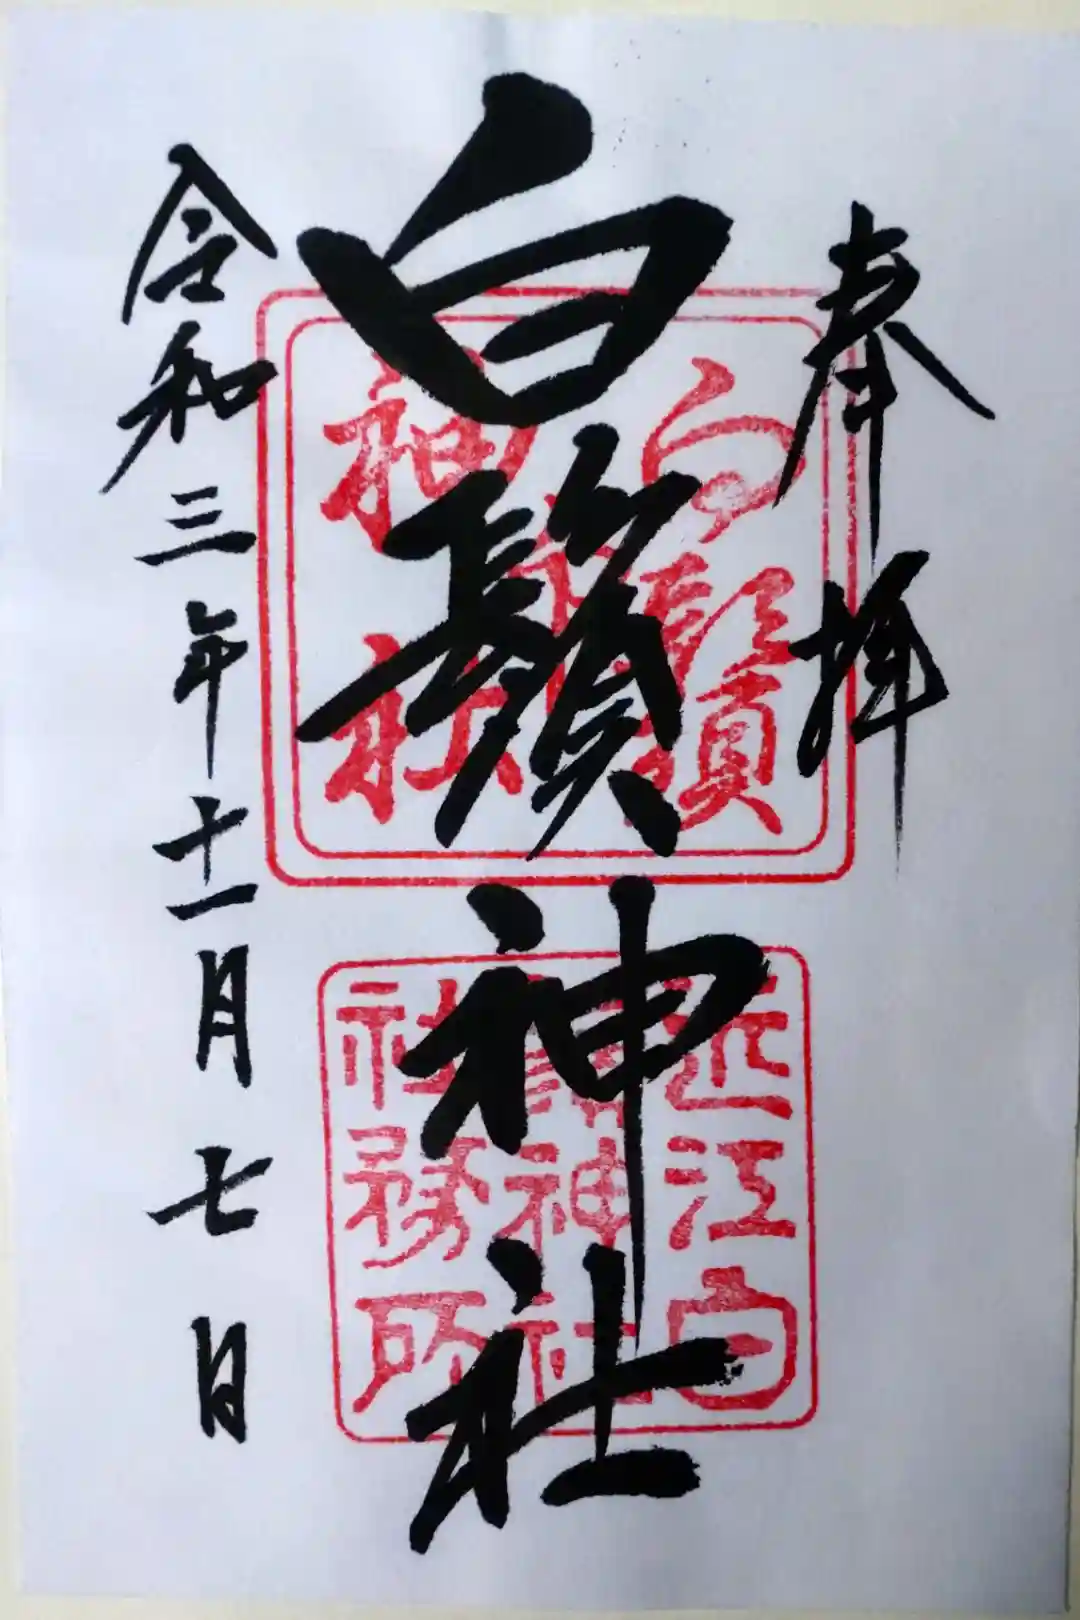 奉拝
白鬚神社
令和三年十一月七日
近江白
鬚神社
社務所